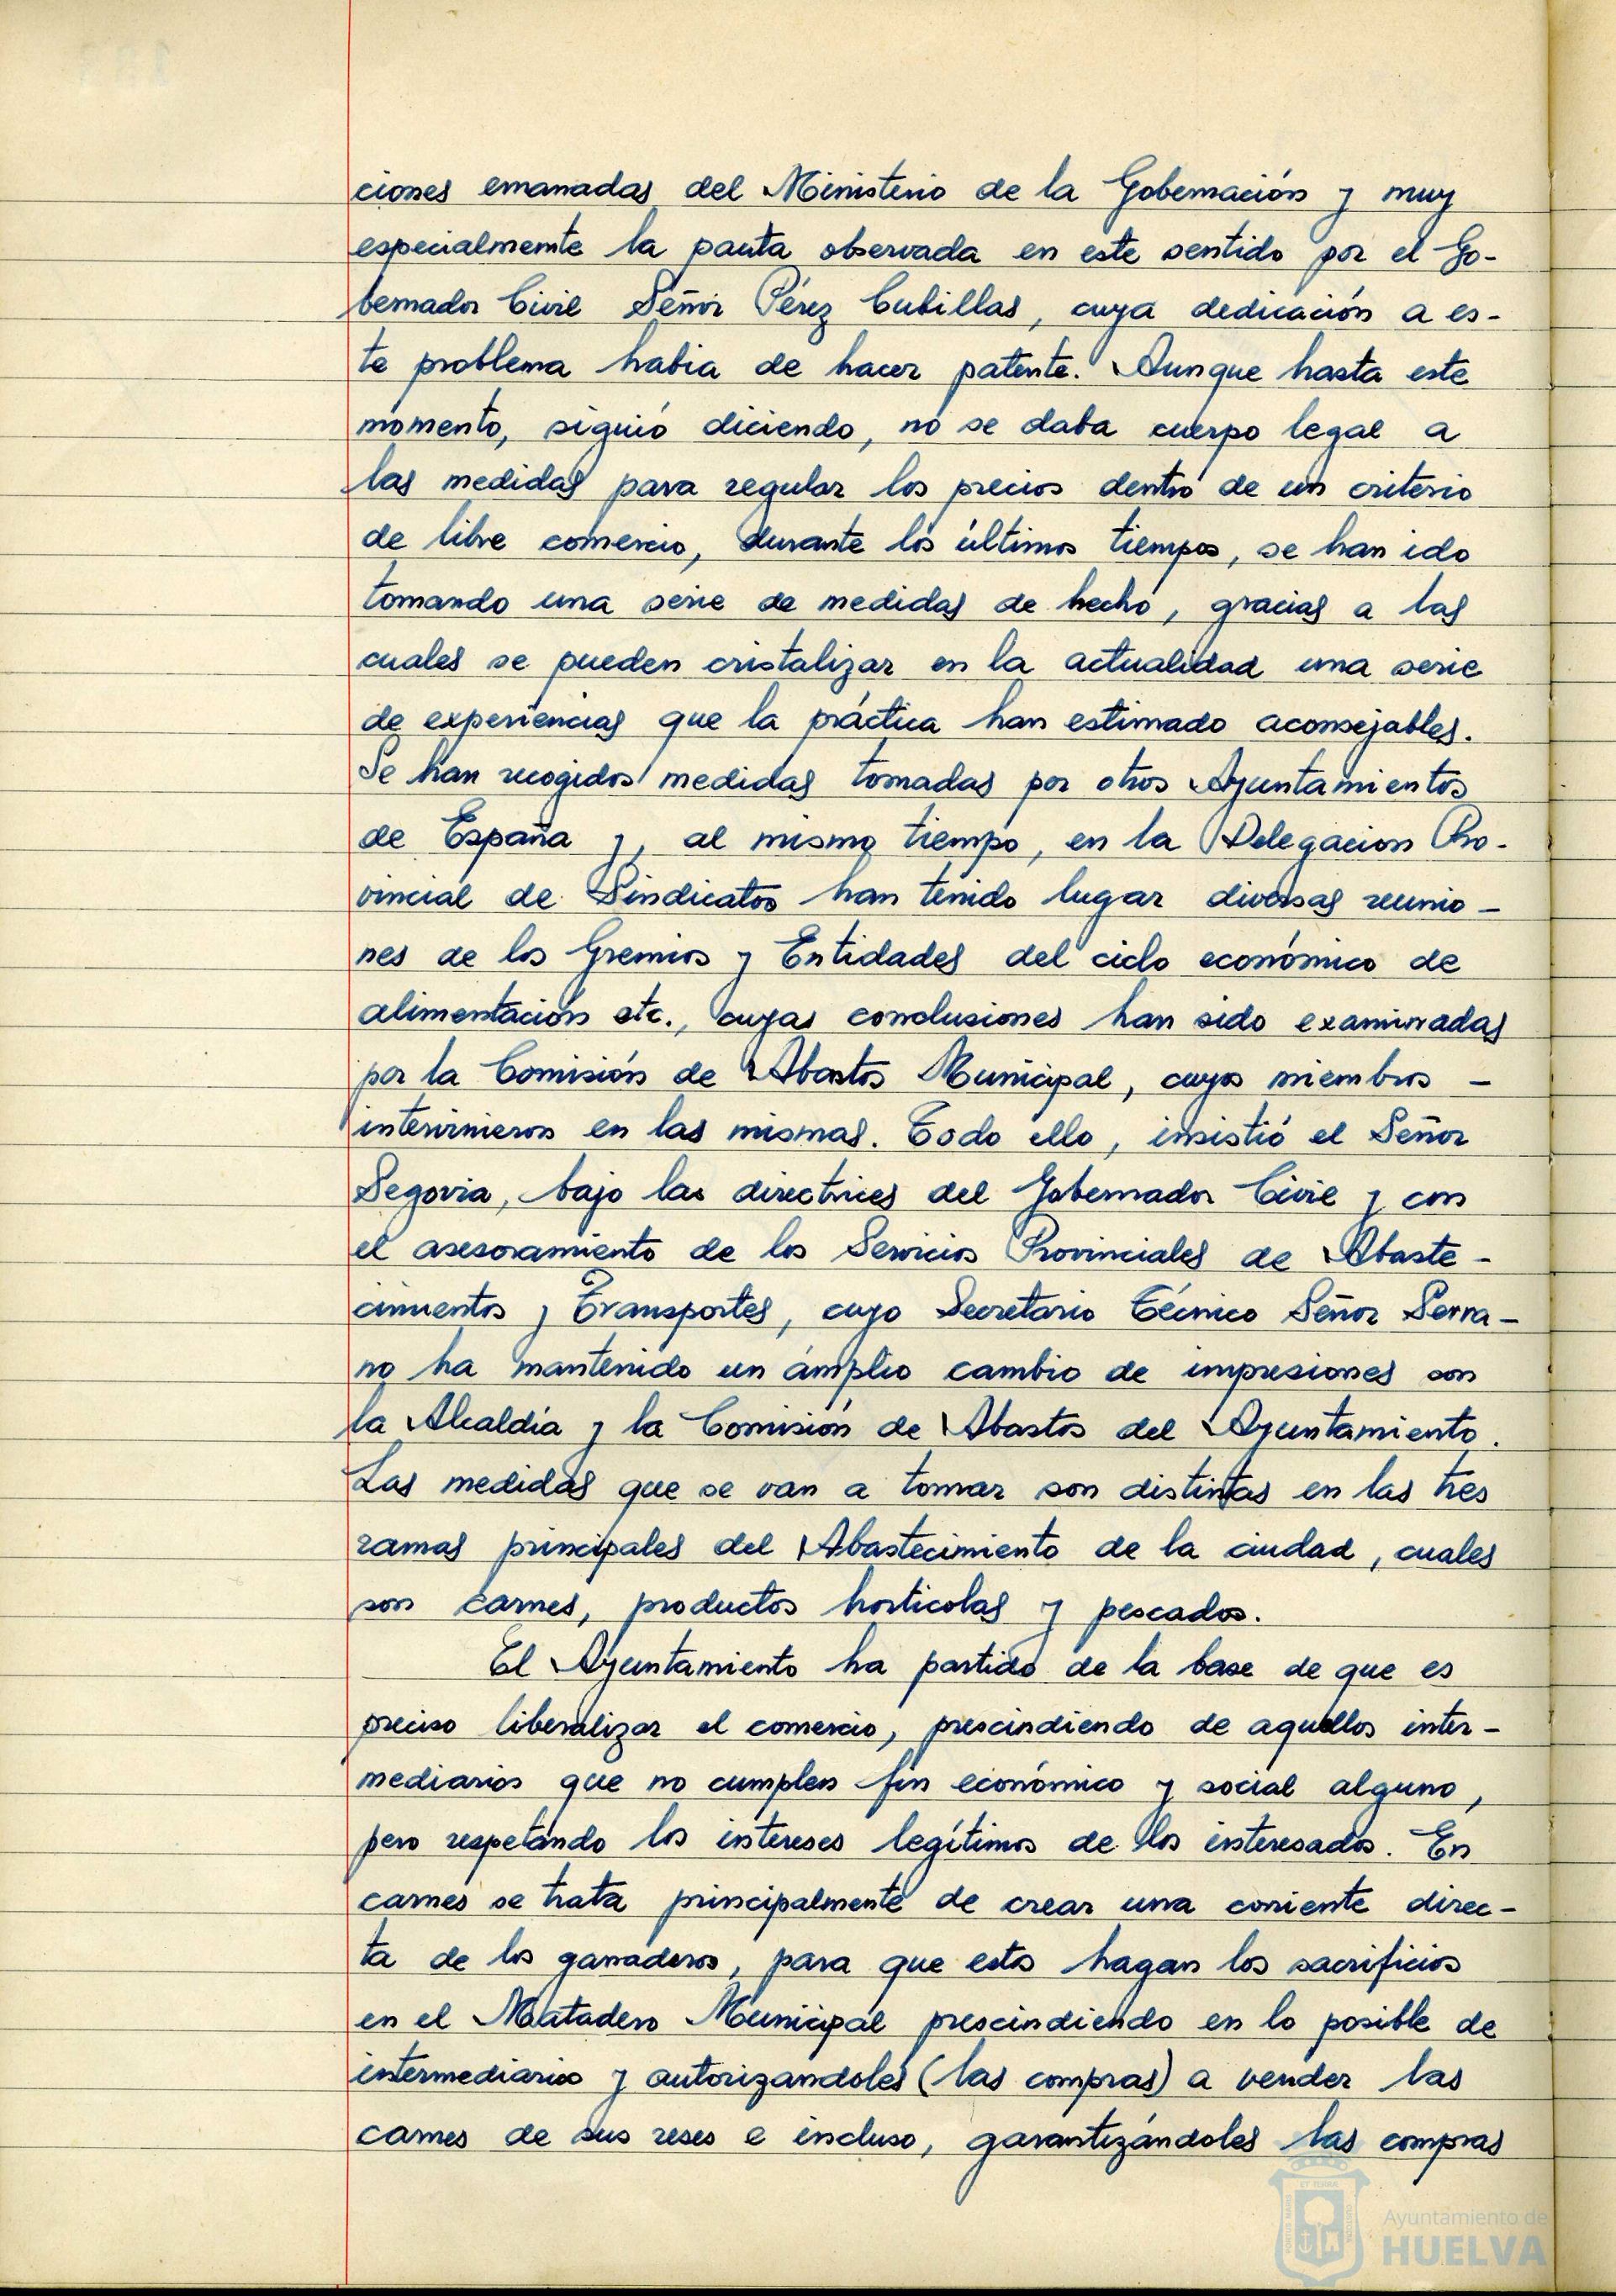 ciones emanadas del Ministerio de la Gobernación y muy
especialmente la pauta observada en este sentido por el Go-
bernador Civil Señor Pérez Cubillas, cuya dedicación a es-
te problema habia de hacer patente. Aunque hasta este
momento, siguió diciendo, no se daba cuerpo legal a
las medidas para regular los precios dentro de un criterio
de libre comercio, durante los últimos tiempos, se han ido
tomando una serie de medidas de hecho, gracias a las
cuales se pueden cristalizar en la actualidad una serie
de experiencias que la práctica han estimado aconsejables.
Se han recogidos medidas tomadas por otros Ayuntamientos
de España y, al mismo tiempo, en la Delegacion Pro-
vincial de Sindicatos han tenido lugar diversas reunio-
nes de los Gremios y Entidades del ciclo económico de
alimentación etc., cuyas conclusiones han sido examinadas
por la Comisión de Abastos Municipal, cuyos miembros -
intervinieron en las mismas. Todo ello, insistió el Señor
Segovia, bajo las directrices del Gobernador Civil y con
el asesoramiento de los Servicios Provinciales de Abaste-
cimientos y Transportes, cuyo Secretario Técnico Señor Serra-
no ha mantenido un amplio cambio de impresiones con
la Alcaldía y la Comisión de Abastos del Ayuntamiento.
Las medidas que se van a tomar son distintas en las tres
ramas principales del Abastecimiento de la ciudad, cuales
son carnes, productos horticolas y pescados.
El Ayuntamiento ha partido de la base de que es
preciso liberalizar el comercio, prescindiendo de aquellos inter-
mediarios que no cumplen fin económico y social alguno,
pero respetando los intereses legítimos de los interesados. En
carnes se trata principalmente de crear una corriente direc-
ta de los ganaderos, para que estos hagan los sacrificios
en el Matadero Municipal prescindiendo en lo posible de
intermediarios y autorizandoles (las compras) a vender las
carnes de sus reses e incluso, garantizándoles las compras
Ayuntamiento de
HUELVA